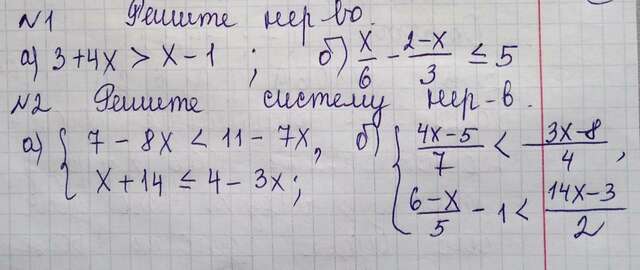 №1 Решите нер-во.
а) 3+4x > x-1 ; б) x/6 - (2-x)/3 ≤ 5
№2 Решите систему нер-в.
а) { 7-8x < 11-7x, x+14 ≤ 4-3x; б) { (4x-5)/7 < (3x-8)/4, (6-x)/5 - 1 < (14x-3)/2